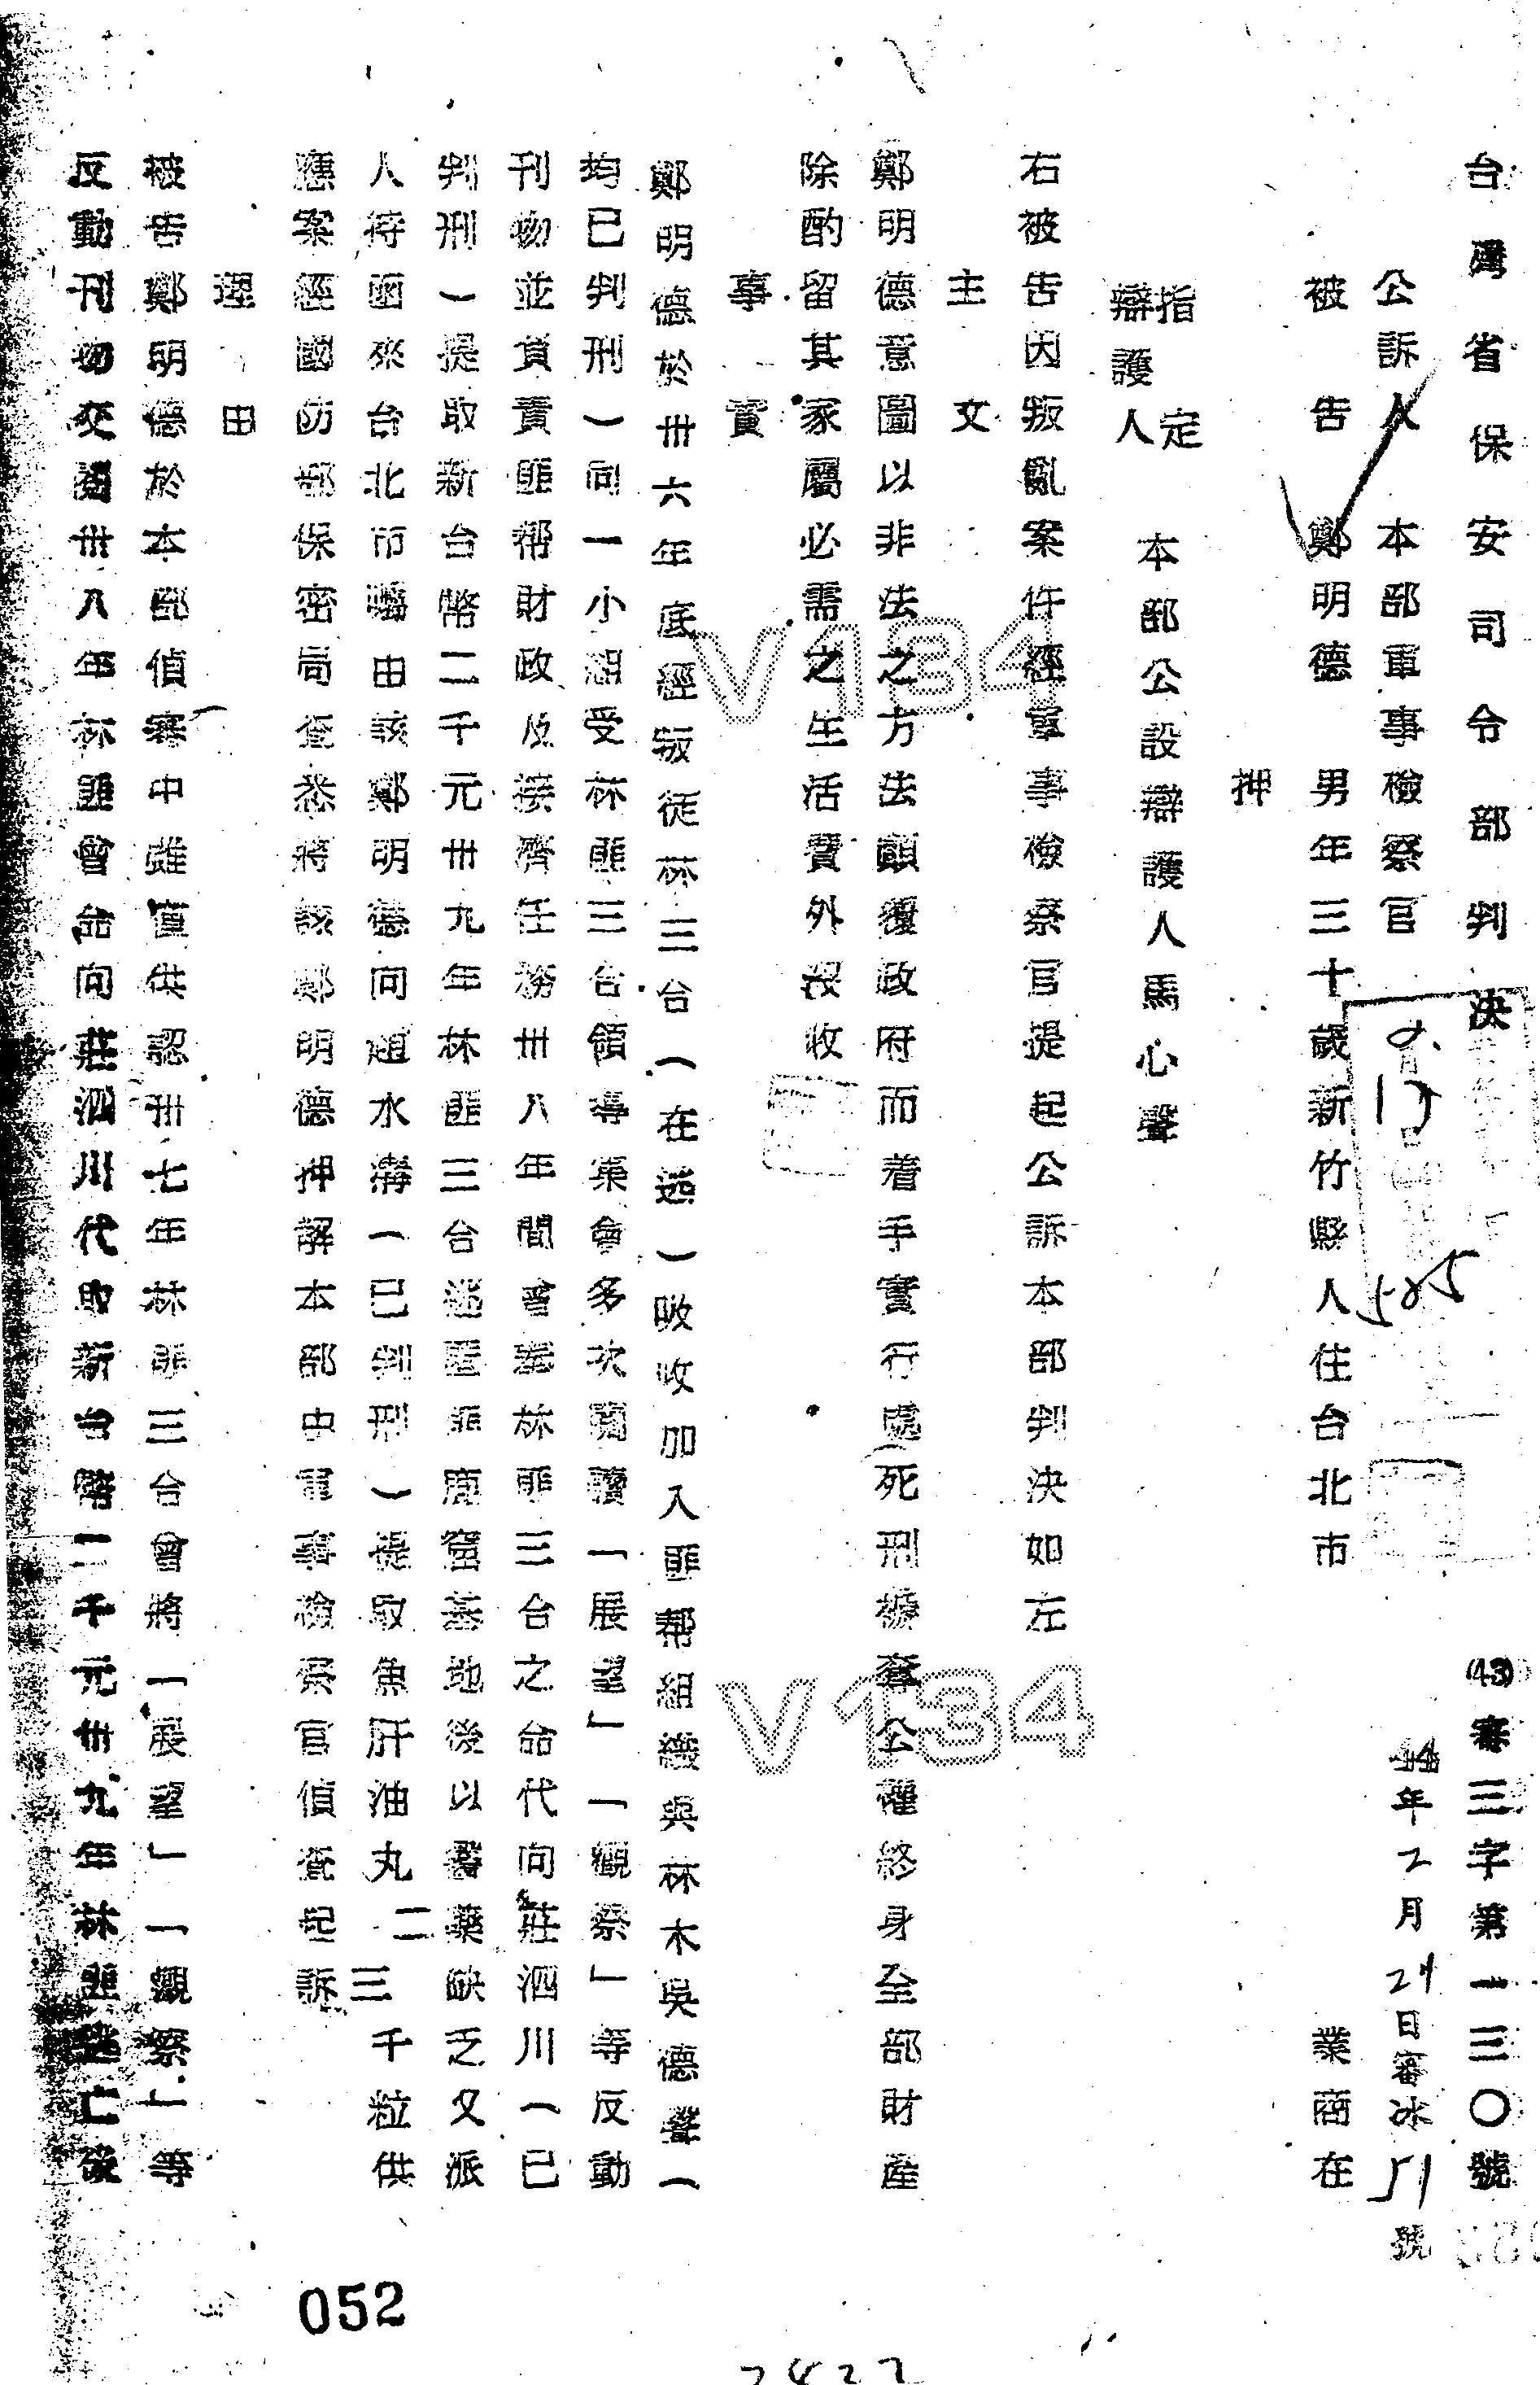 台灣省保安司令部判決
(43)審三字第一三〇號
44年2月24日審冰51號
公訴人　本部軍事檢察官
被告　鄭明德　男年三十歲新竹縣人住台北市　業商在
押
指定
辯護人　本部公設辯護人馬心聲
右被告因叛亂案件經軍事檢察官提起公訴本部判決如左
主文
鄭明德意圖以非法之方法顛覆政府而着手實行處死刑褫奪公權終身至部財產
除酌留其家屬必需之生活費外沒收
事實
鄭明德於卅六年底經叛徒林三台(在逃)吸收加入匪幫組織與林木吳德聲(
均已判刑)同一小組受林匪三台領導集會多次閱讀「展望」「觀察」等反動
刊物並負責匪幫財政及接濟任務卅八年間曾奉林匪三台之命代向莊泗川(已
判刑)提取新台幣二千元卅九年林匪三台逃匿匪鹿窟基地後以醫藥缺乏又派
人持函來台北市囑由該鄭明德向趙水溝(已判刑)提取魚肝油丸二三千粒供
應案經國防部保密局查悉將該鄭明德押解本部由軍事檢察官偵查起訴
理由
被告鄭明德於本部偵審中雖僅供認卅七年林匪三台曾將「展望」「觀察」等
反動刊物交閱卅八年林匪曾命向莊泗川代取新台幣二千元卅九年林匪逃亡後
052
2422
V134
V134